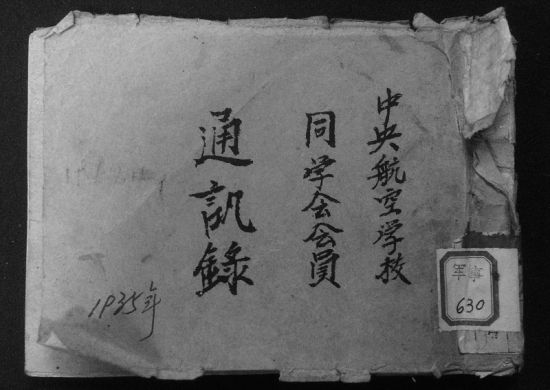 中央航空学校
同学会会员
通訊錄
1935年
军事
630